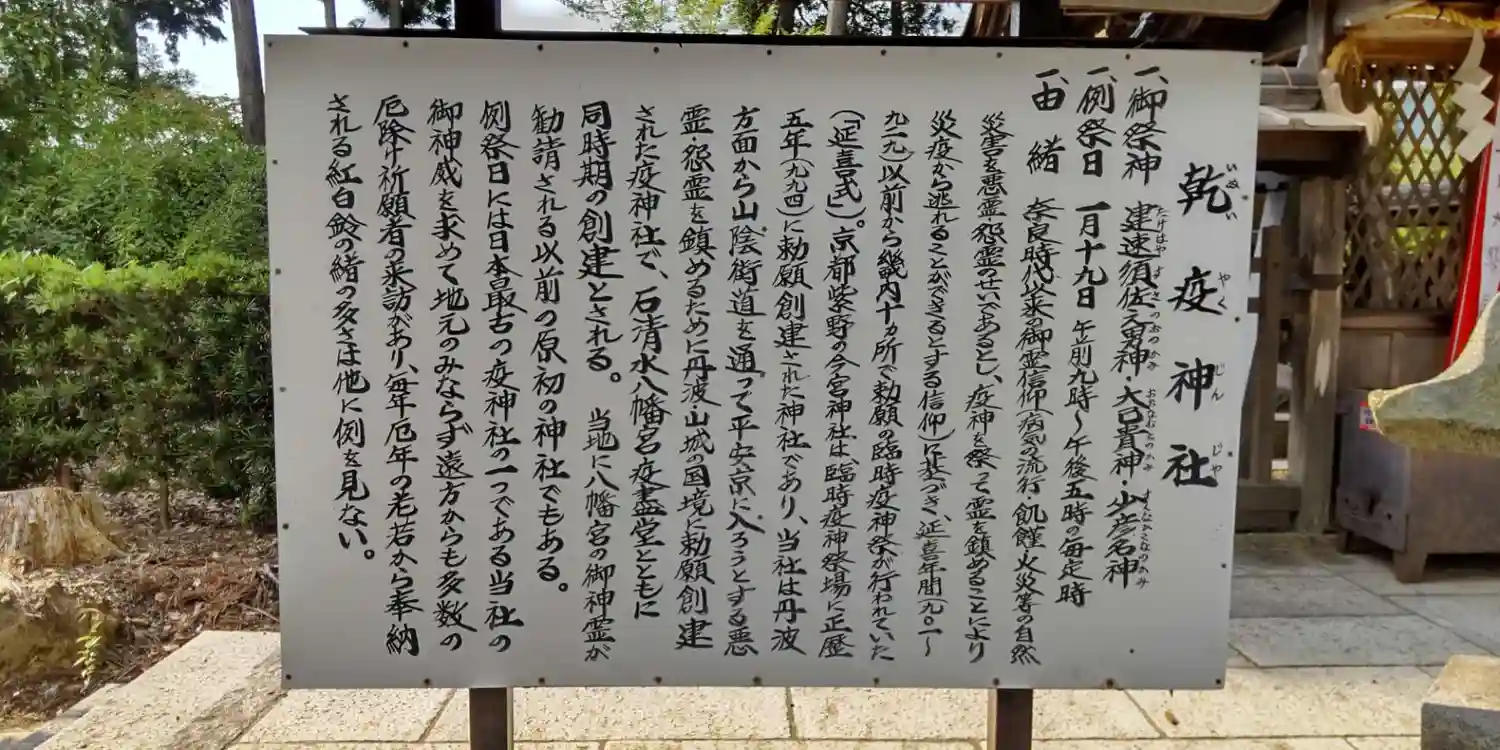 乾疫神社
いぬい やく じん じや
一、御祭神 建速須佐之男神・大己貴神・少彦名神
たけはやすさのおのかみ おおなむちのかみ すくなひこなのかみ
一、例祭日 一月十九日 午前九時～午後五時の毎定時
一、由緒 奈良時代以来の御霊信仰(病気の流行・飢饉・火災等の自然
災害を悪霊・怨霊のせいであるとし、疫神を祭って霊を鎮めることにより
災疫から逃れることができるとする信仰)に基づき、延喜年間(九〇一～
九二二)以前から畿内十ヵ所で勅願の臨時疫神祭が行われていた
(「延喜式」)。京都紫野の今宮神社は、臨時疫神祭場に正歴
五年(九九四)に勅願創建された神社であり、当社は丹波
方面から山陰街道を通って平安京に入ろうとする悪
霊・怨霊を鎮めるために丹波・山城の国境に勅願創建
された疫神社で、石清水八幡宮疫塚堂とともに
同時期の創建とされる。 当地に八幡宮の御神霊が
勧請される以前の原初の神社でもある。
例祭日には日本最古の疫神社の一つである当社の
御神威を求めて地元のみならず遠方からも多数の
厄除け祈願者の来訪があり、毎年厄年の老若から奉納
される紅白鈴の緒の多さは他に例を見ない。